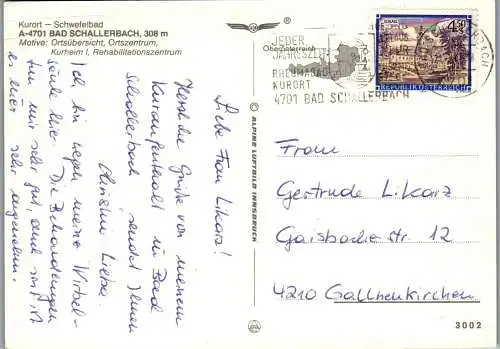 Kurort – Schwefelbad
A-4701 BAD SCHALLERBACH, 308 m
Motive: Ortsübersicht, Ortszentrum,
Kurheim I, Rehabilitationszentrum
Oberösterreich
JEDER
JAHRESZEIT
RHEUMABAD
KURORT
4701 BAD SCHALLERBACH
4.50
REPUBLIK ÖSTERREICH
Liebe Frau Likarz!
Herzliche Grüße von meinem
Kuraufenthalt in Bad
Schallerbach sendet Ihnen
Christine Liebe.
Ich bin wegen meine Wirbel-
säule hier. Die Behandlungen
tun mir sehr gut, und sonst ist
es hier sehr angenehm.
© ALPINE LUFTBILD INNSBRUCK
Frau
Gertrude Likarz
Gaisbachstr. 12
4210 Gallneukirchen
3002